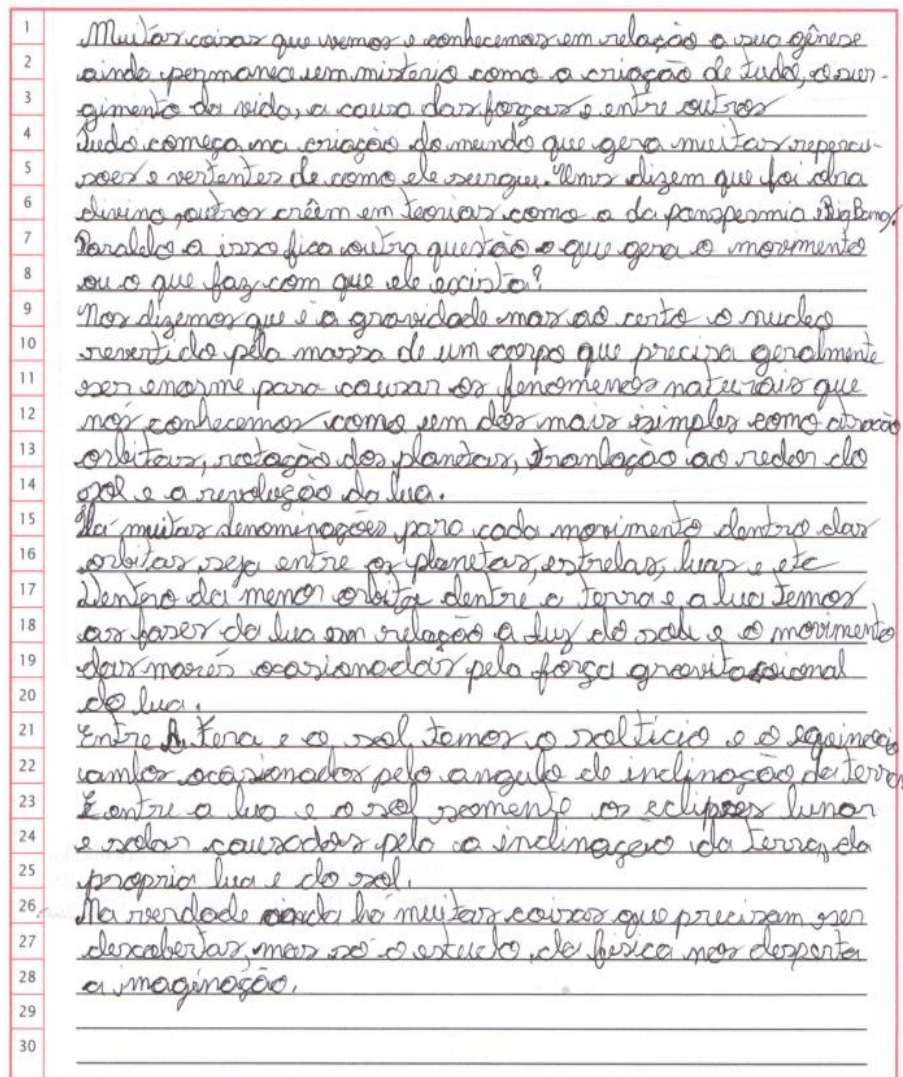 1 Muitas coisas que vemos e conhecemos em relação a sua gênese
2 ainda permanece um misterio como a criação de tudo, o sur-
3 gimento da vida, a causa das forças e entre outros
4 Tudo começa na criação do mundo que gera muitas repercu-
5 soes e vertentes de como ele surgue. Uns dizem que foi obra
6 divina, outros crêem em teorias como a da panspermia e Big Bang.
7 Paraldo a isso fica outra questão o que gera o movimento
8 ou o que faz com que ele exista?
9 Nos dizemos que é a gravidade mas ao certo o nucleo
10 revertido pela massa de um corpo que precisa geralmente
11 ser enorme para causar os fenomenos naturais que
12 nós conhecemos como um dos mais simples como atração
13 orbitais, rotação dos planetas, translação ao redor do
14 sol e a revolução da lua.
15 Há muitas denominações para cada movimento dentro das
16 orbitas seja entre os planetas, estrelas, luas e etc
17 Dentro da menor orbita dentre a terra e a lua temos
18 as fases da lua em relação a luz do sol e o movimento
19 das marés ocasionadas pela força gravitacional
20 da lua.
21 Entre A Tera e o sol temos o solticio e o equinocio
22 ambos ocasionados pelo angulo de inclinação da terra
23 E entre a lua e o sol somente os eclipses lunar
24 e solar causados pela a inclinação da terra, da
25 propria lua e do sol.
26 Na verdade ainda há muitas coisas que precisam ser
27 descobertas, mas só o estudo da fisica nos desperta
28 a imaginação.
29
30